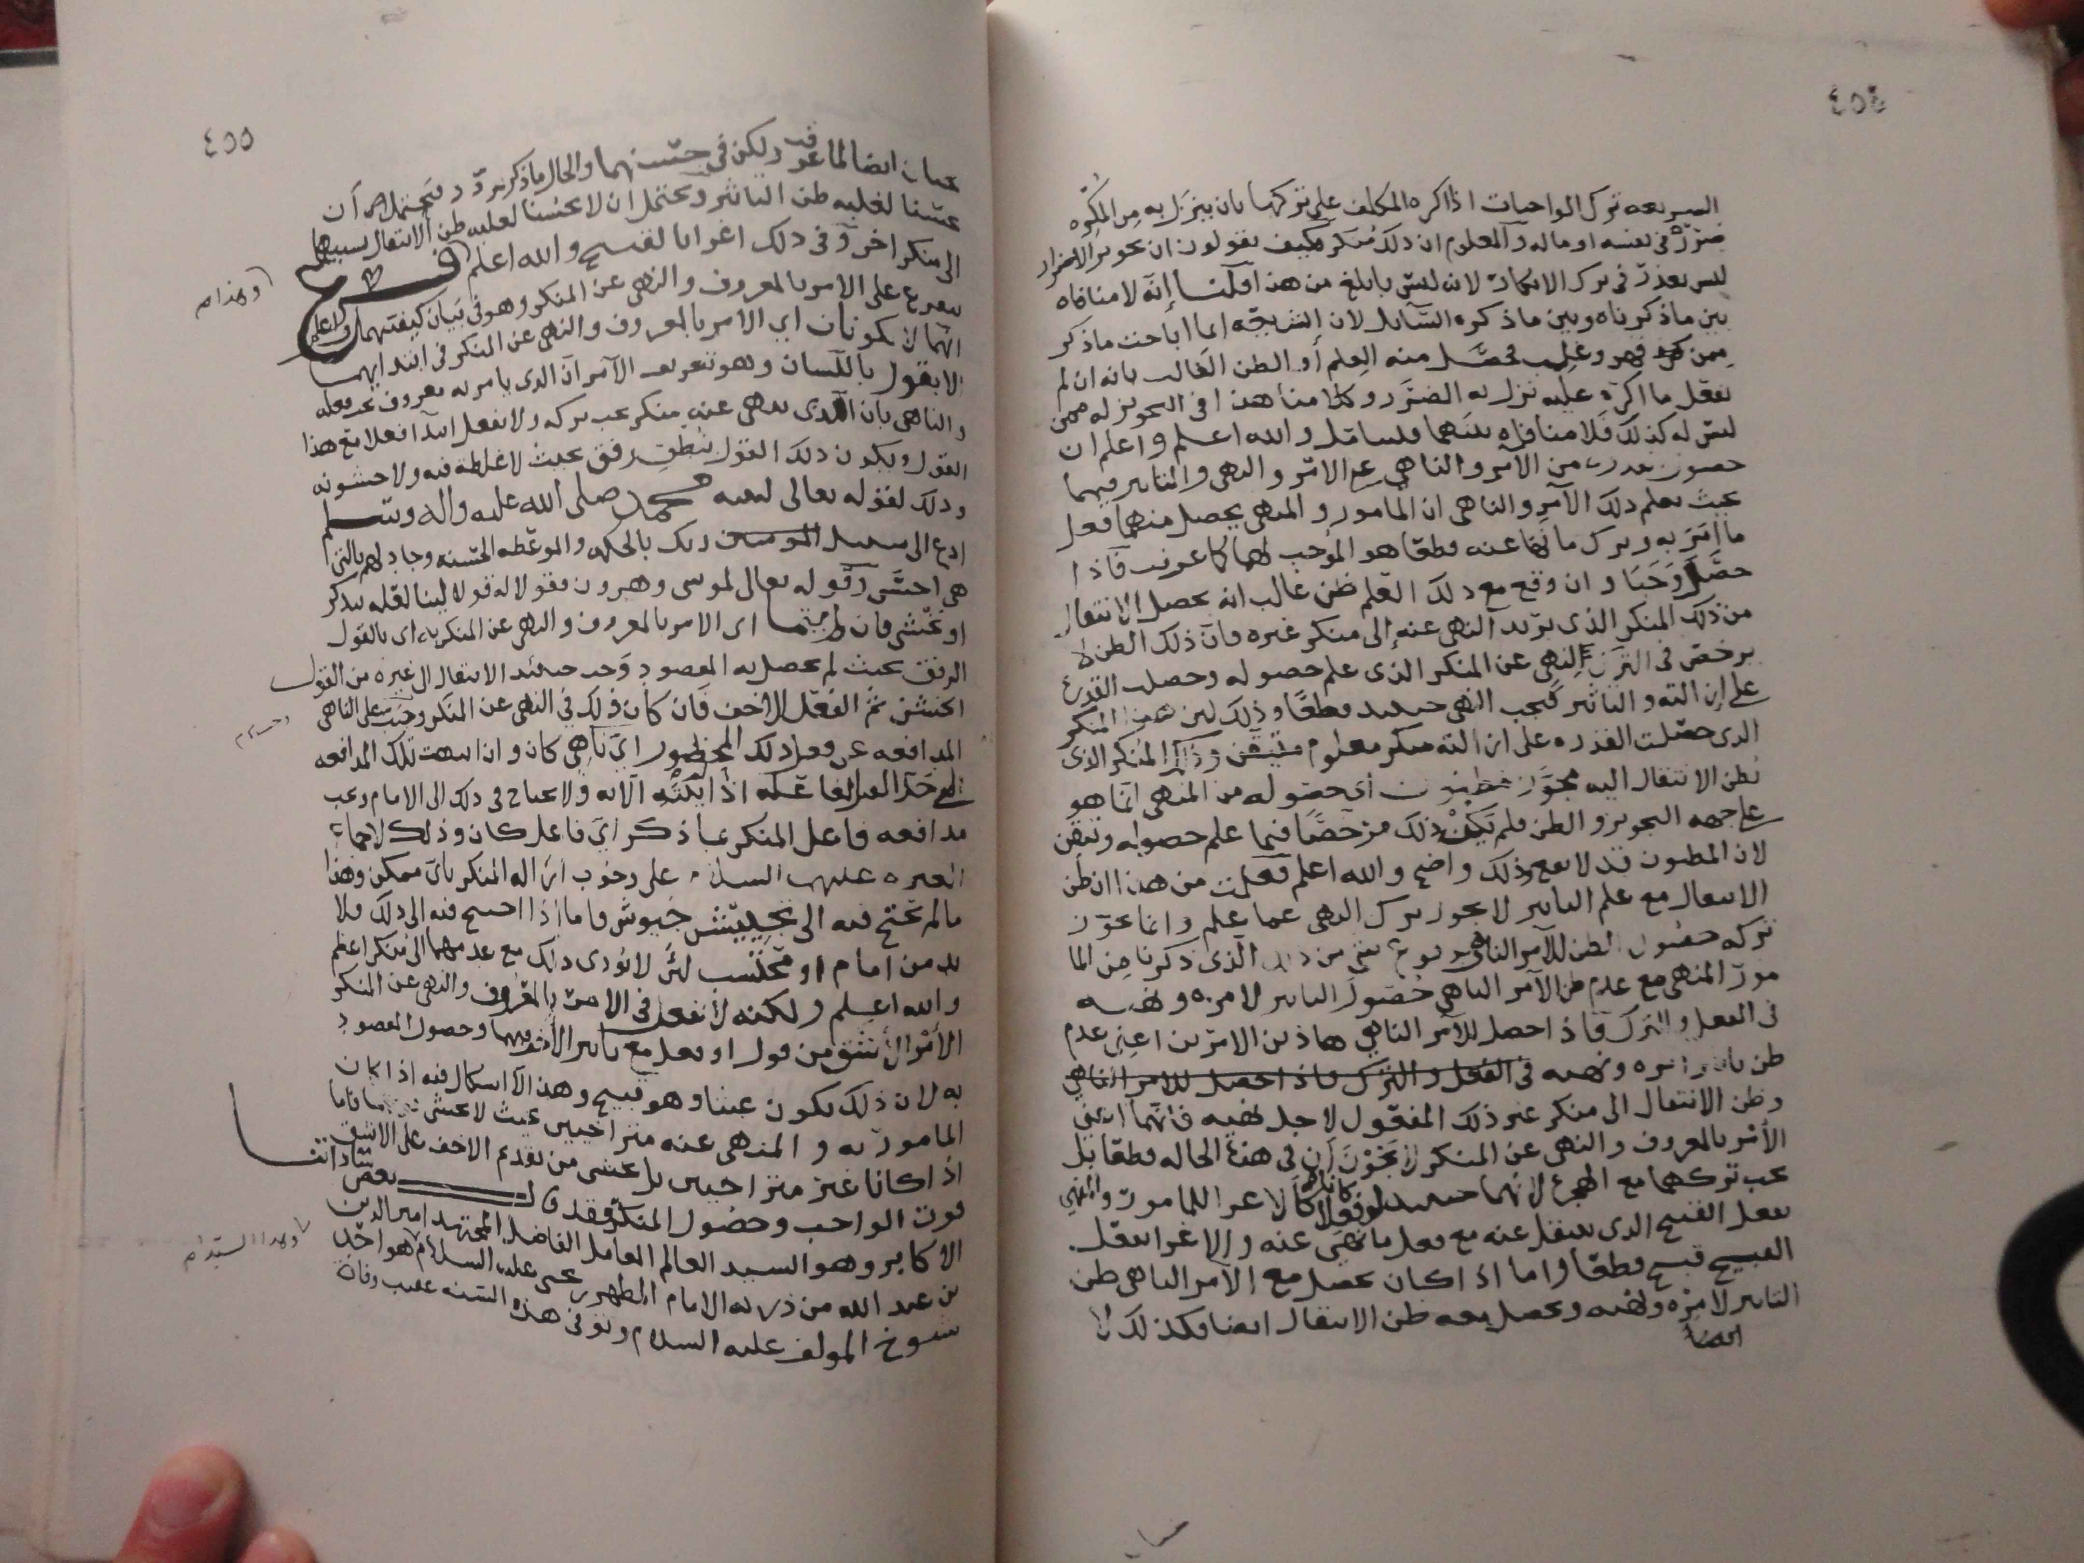 ٤٥٤
الشريعه ترك الواجبات اذا اكره المكلف على تركها بان ينزل به من المكره
ضرر في نفسه او ماله والمعلوم ان ذلك منكر فكيف تقولون ان تجويز الاضرار
ليس بعذر في ترك الانكار لانه ليس بابلغ من هذا قلنا إنه لا منافاه
بين ما ذكرناه وبين ما ذكره السائل لان الشريعه انما اباحت ما ذكر
فحصل منه العلم أو الظن الغالب بانه ان لم
يفعل ما اكره عليه نزل به الضرر وكلامنا هذا في التجويز له فمن
ليس له كذلك فلا منافاه بينهما فليتامل والله اعلم واعلم ان
حصول من الآمر والناهي على الامر والنهي والتاثير فيهما
بحيث يعلم ذلك الآمر والناهي ان المامور والمنهي يحصل منهما فعل
ما امر به وترك ما نها عنه قطعا هو الموجب لهما كما عرفت فاذا
حصل وجبا وان وقع مع ذلك العلم ظن غالب انه يحصل الانتقال
من ذلك المنكر الذي يريد النهي عنه إلى منكر غيره فان ذلك الظن لا
يرخص في الترك النهي عن المنكر الذي علم حصوله وحصلت القدرة
على ازالته والتاثير فيجب النهي حينئذ قطعا وذلك لان هذا المنكر
الذي حصلت القدره على ازالته منكر معلوم متيقن وذلك المنكر الذي
يظن الانتقال اليه مجوز مظنون أي حصوله من المنهي انما هو
على جهه التجويز والظن فلم يكن ذلك مرخصا فيما علم حصوله وتيقن
لان المظنون قد لا يقع وذلك واضح والله اعلم فعلمت من هذا ان ظن
الانتقال مع علم التاثير لا يجوز ترك النهي عما علم وانما يجوز
تركه حصول الظن للآمر الناهي من ذلك الذي ذكرنا من الما
مور المنهي مع عدم ظن الآمر الناهي حصول التاثير لامره ونهيه
في الفعل والترك فاذا حصل للآمر الناهي هاذين الامرين اعني عدم
ظن تاثير امره ونهيه في الفعل والترك فاذا حصل للامر الناهي
وظن الانتقال الى منكر غير ذلك المفعول لاجل نهيه فانهما اعني
الأمر بالمعروف والنهي عن المنكر لا يجوزان في هذه الحاله قطعا بل
يجب تركهما مع الهجره لانهما حينئذ لو فعلا كانا كالاغرا للمامور والمنهي
بفعل القبيح الذي ينتقل عنه مع فعل ما نهي عنه والاغرا بفعل
القبيح قبيح قطعا واما اذا كان يحصل مع الآمر الناهي ظن
التاثير لامره ونهيه ويحصل معه ظن الانتقال ايضا فكذلك لا
٤٥٥
يجبان ايضا لما عرفت ولكن في حسنهما والحال ما ذكر تردد يحتمل ان
يحسنا لغلبه ظن التاثير ويحتمل ان لا يحسنا لغلبه ظن الانتقال بسببهما
الى منكر اخر وفي ذلك اغرا بالقبيح والله اعلم فرع
يتفرع على الامر بالمعروف والنهي عن المنكر وهو في بيان كيفيتهما واعلم
انهما لا يكونان اي الامر بالمعروف والنهي عن المنكر في ابتدايهما
الا بقول باللسان وهو تعريف الآمر ان الذي يامر به معروف يجب فعله
والناهي بان الذي ينهى عنه منكر يجب تركه ولا يفعل ابتدا فعلا مع هذا
القول ويكون ذلك القول بنطق رفق بحيث لا غلظه فيه ولا خشونه
وذلك لقوله تعالى لنبيه محمد صلى الله عليه واله وسلم
ادع الى سبيل ربك بالحكمه والموعظه الحسنه وجادلهم بالتي
هي احسن وقوله تعالى لموسى وهرون فقولا له قولا لينا لعله يتذكر
او يخشى فان اي الامر بالمعروف والنهي عن المنكر به اي بالقول
الرفق بحيث لم يحصل به المقصود وجب حينئذ الانتقال الى غيره من القول
الخشن ثم الفعل الاخف فان كان ذلك في النهي عن المنكر وجب على الناهي
المدافعه عن فعل ذلك المحظور اي ناهي كان وان انتهت تلك المدافعه
الى حد القتل لفاعله اذا لم يكنه الا به ولا يحتاج في ذلك الى الامام وتجب
مدافعه فاعل المنكر بما ذكر اي فاعل كان وذلك لاجماع
العتره عليهم السلام على وجوب ازاله المنكر باي ممكن وهذا
ما لم يحتج فيه الى تجييش جيوش فاما اذا احتيج فيه الى ذلك فلا
بد من امام او محتسب لئن لا يؤدي ذلك مع عدمهما الى منكر اعظم
والله اعلم ولكنه لا يفعل في الامر بالمعروف والنهي عن المنكر
الأمر الأشق من قول او فعل مع تاثير الأخف فيهما وحصول المقصود
به لان ذلك يكون عبثا وهو قبيح وهذا لا اشكال فيه اذا كان
المامور به والمنهي عنه متراخيين بحيث لا يخشى فاما
اذا كانا غير متراخيين بل يخشى من تقديم الاخف على الاشق
فوت الواجب وحصول المنكر فقد قال بعض ساداتنا
الاكابر وهو السيد العالم العامل الفاضل المجتهد امير الدين
بن عبد الله من ذريه الامام المطهر بن يحيى عليه السلام هو احد
شيوخ المولف عليه السلام وتوفي هذه السنه عقيب وفاة